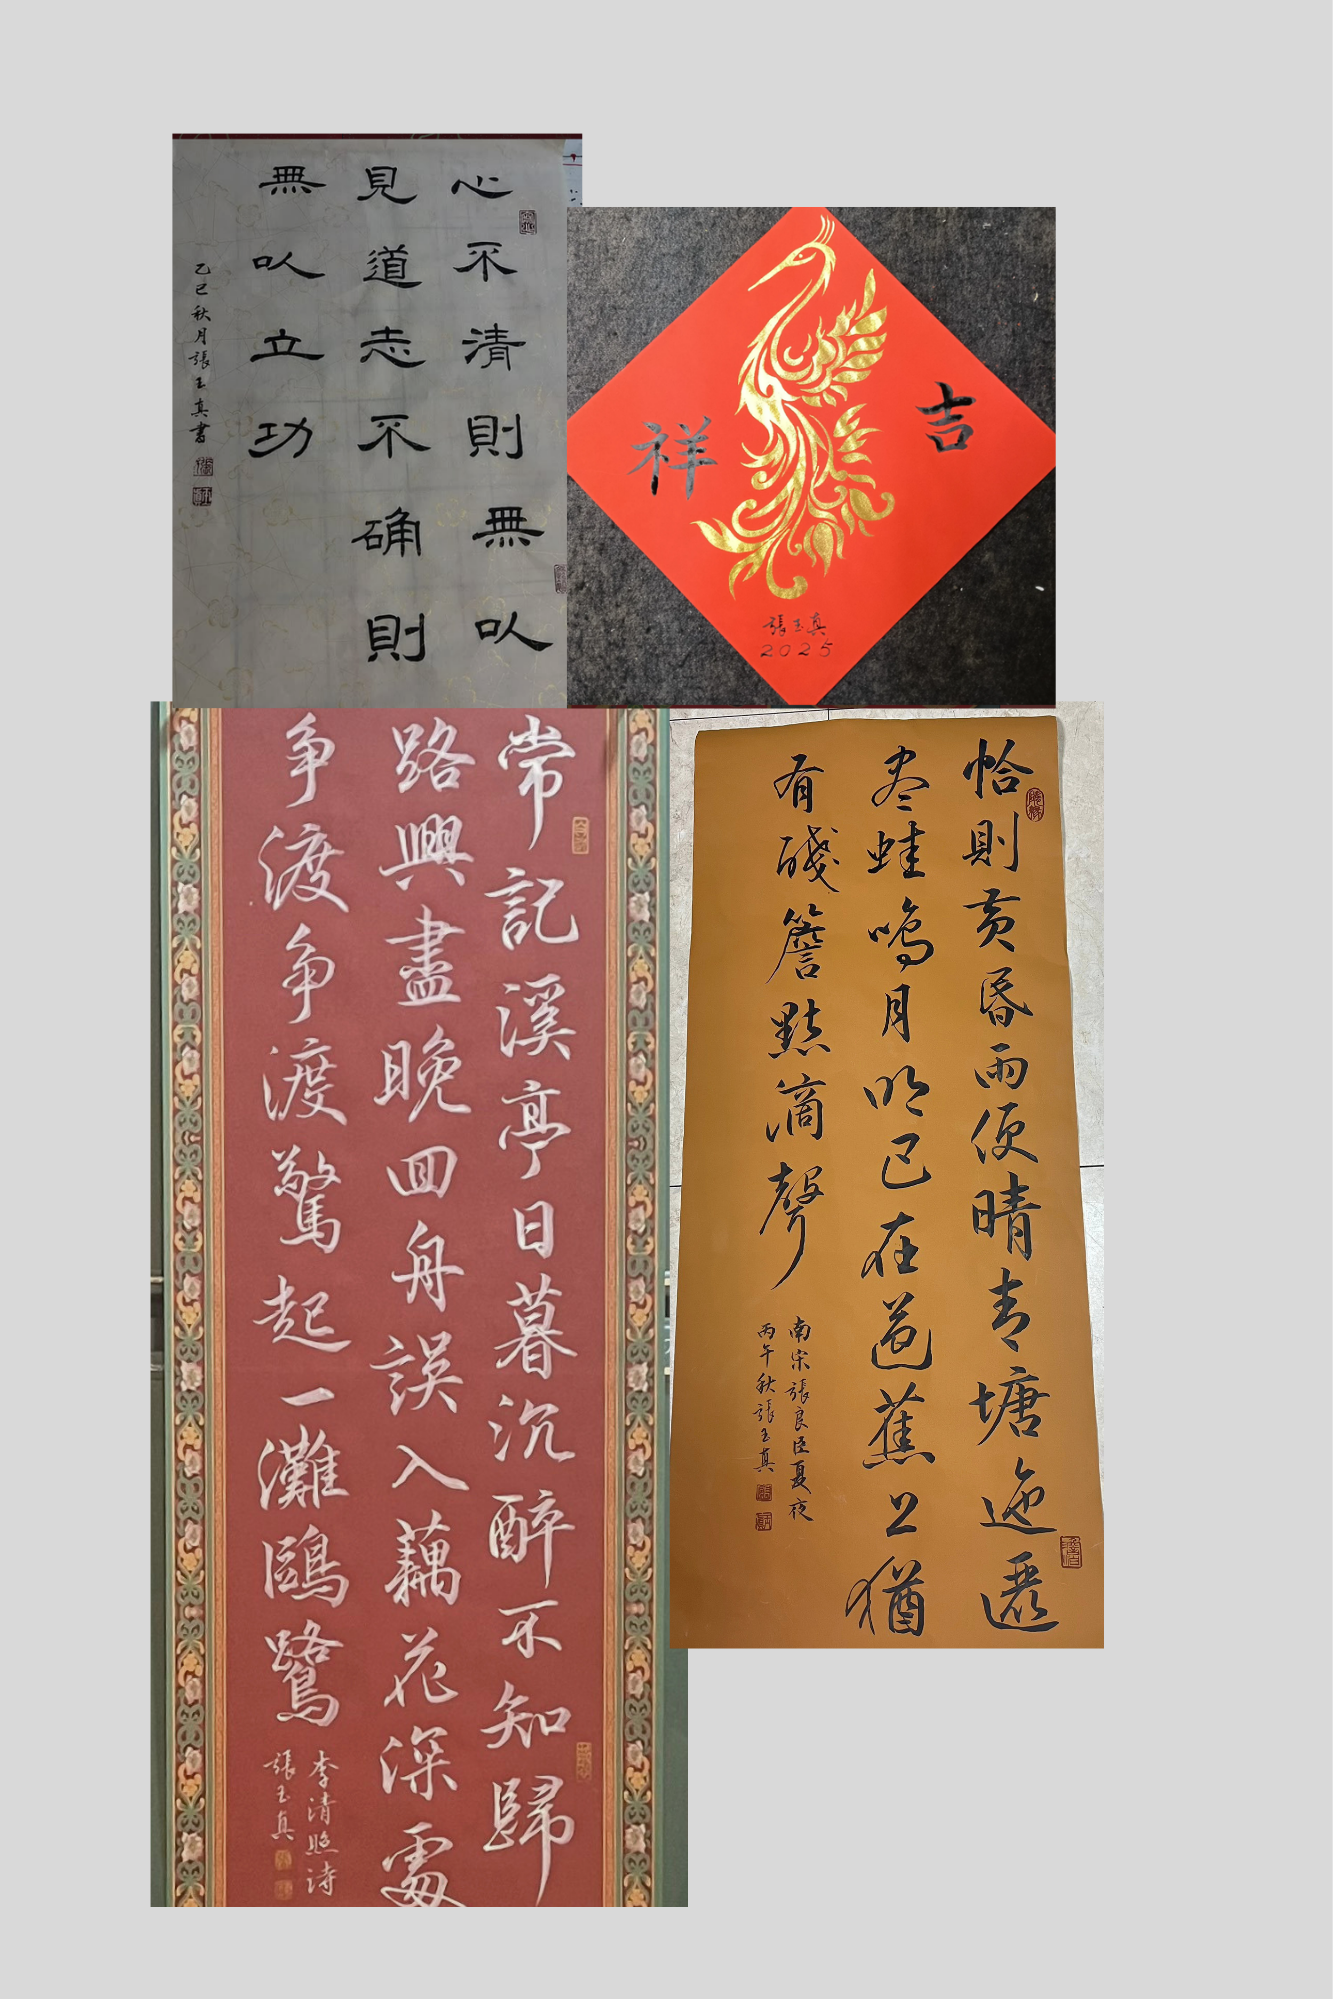 心不清則無以
見道志不确則
無以立功
乙巳秋月張玉真書
吉
祥
張玉真
2025
常記溪亭日暮沉醉不知歸
路興盡晚囬舟誤入藕花深處
争渡争渡驚起一灘鷗鷺
李清照詩
張玉真
恰則黄昏雨便晴青塘迤邐
尽蛙鳴月明已在芭蕉上猶
有殘簷點滴聲
南宋張良臣夏夜
丙午秋張玉真